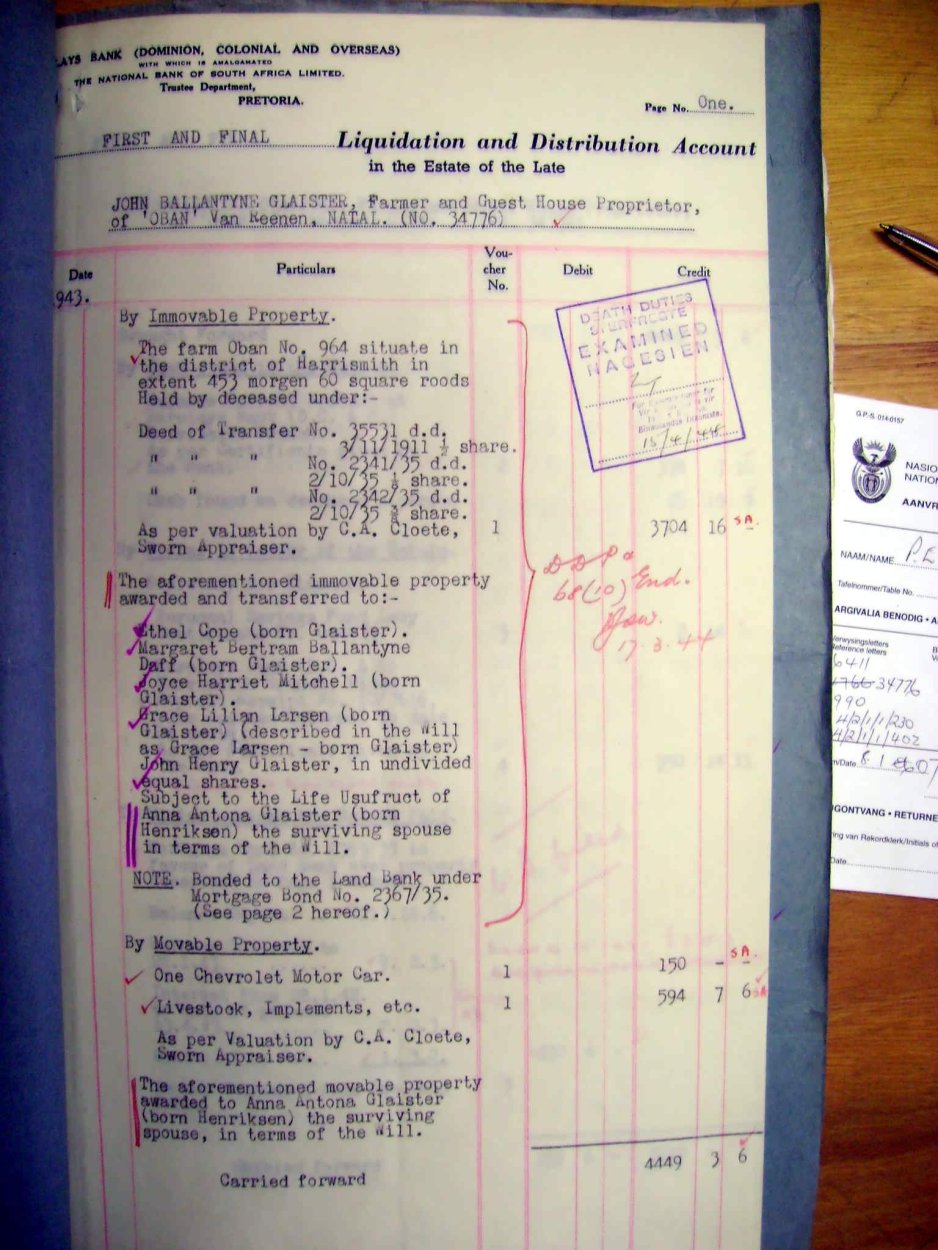 AYS BANK (DOMINION, COLONIAL AND OVERSEAS)
WITH WHICH IS AMALGAMATED
THE NATIONAL BANK OF SOUTH AFRICA LIMITED.
Trustee Department,
PRETORIA.
Page No. One.
FIRST AND FINAL Liquidation and Distribution Account
in the Estate of the Late
JOHN BALLANTYNE GLAISTER, Farmer and Guest House Proprietor,
of 'OBAN' Van Reenen, NATAL. (NO. 34776)
Date Particulars Voucher No. Debit Credit
943.
By Immovable Property.
The farm Oban No. 964 situate in
the district of Harrismith in
extent 453 morgen 60 square roods
Held by deceased under:-
Deed of Transfer No. 35531 d.d.
3/11/1911 ½ share.
" " " No. 2341/35 d.d.
2/10/35 share.
" " " No. 2342/35 d.d.
2/10/35 share.
As per valuation by C.A. Cloete, 1 3704 16 - SA.
Sworn Appraiser.
The aforementioned immovable property
awarded and transferred to:-
Ethel Cope (born Glaister).
Margaret Bertram Ballantyne
Daff (born Glaister).
Joyce Harriet Mitchell (born
Glaister).
Grace Lilian Larsen (born
Glaister) (described in the Will
as Grace Larsen - born Glaister)
John Henry Glaister, in undivided
equal shares.
Subject to the Life Usufruct of
Anna Antona Glaister (born
Henriksen) the surviving spouse
in terms of the Will.
NOTE. Bonded to the Land Bank under
Mortgage Bond No. 2367/35.
(See page 2 hereof.)
By Movable Property.
One Chevrolet Motor Car. 1 150 - - SA.
Livestock, Implements, etc. 1 594 7 6 SA
As per Valuation by C.A. Cloete,
Sworn Appraiser.
The aforementioned movable property
awarded to Anna Antona Glaister
(born Henriksen) the surviving
spouse, in terms of the Will.
4449 3 6
Carried forward
DEATH DUTIES
STERFREGTE
EXAMINED
NAGESIEN
15/4/44
68(10) End.
17.3.44
G.P.-S. 014-0157
NASIO
NATION
AANVR
NAAM/NAME P.E
Tafelnommer/Table No.
ARGIVALIA BENODIG • A
erwysingsletters
eference letters
6411
34776
990
4/2/1/1/230
4/2/1/1/402
/Date
ONTVANG • RETURNE
ing van Rekordklerk/Initials of
Date